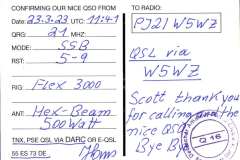 CONFIRMING OUR NICE QSO FROM
DATE: 23.3.23 UTC: 11:41
QRG: 21 MHZ:
MODE: SSB
RST: 5-9
RIG: Flex 3000
ANT: Hex-Beam
500 Watt
TNX, PSE QSL VIA DARC OR E-QSL
55 ES 73 DE
TO RADIO:
PJ2/ W5WZ
QSL via
W5WZ
Scott thank you
for calling and the
nice QSO
Bye Bye
Q 16